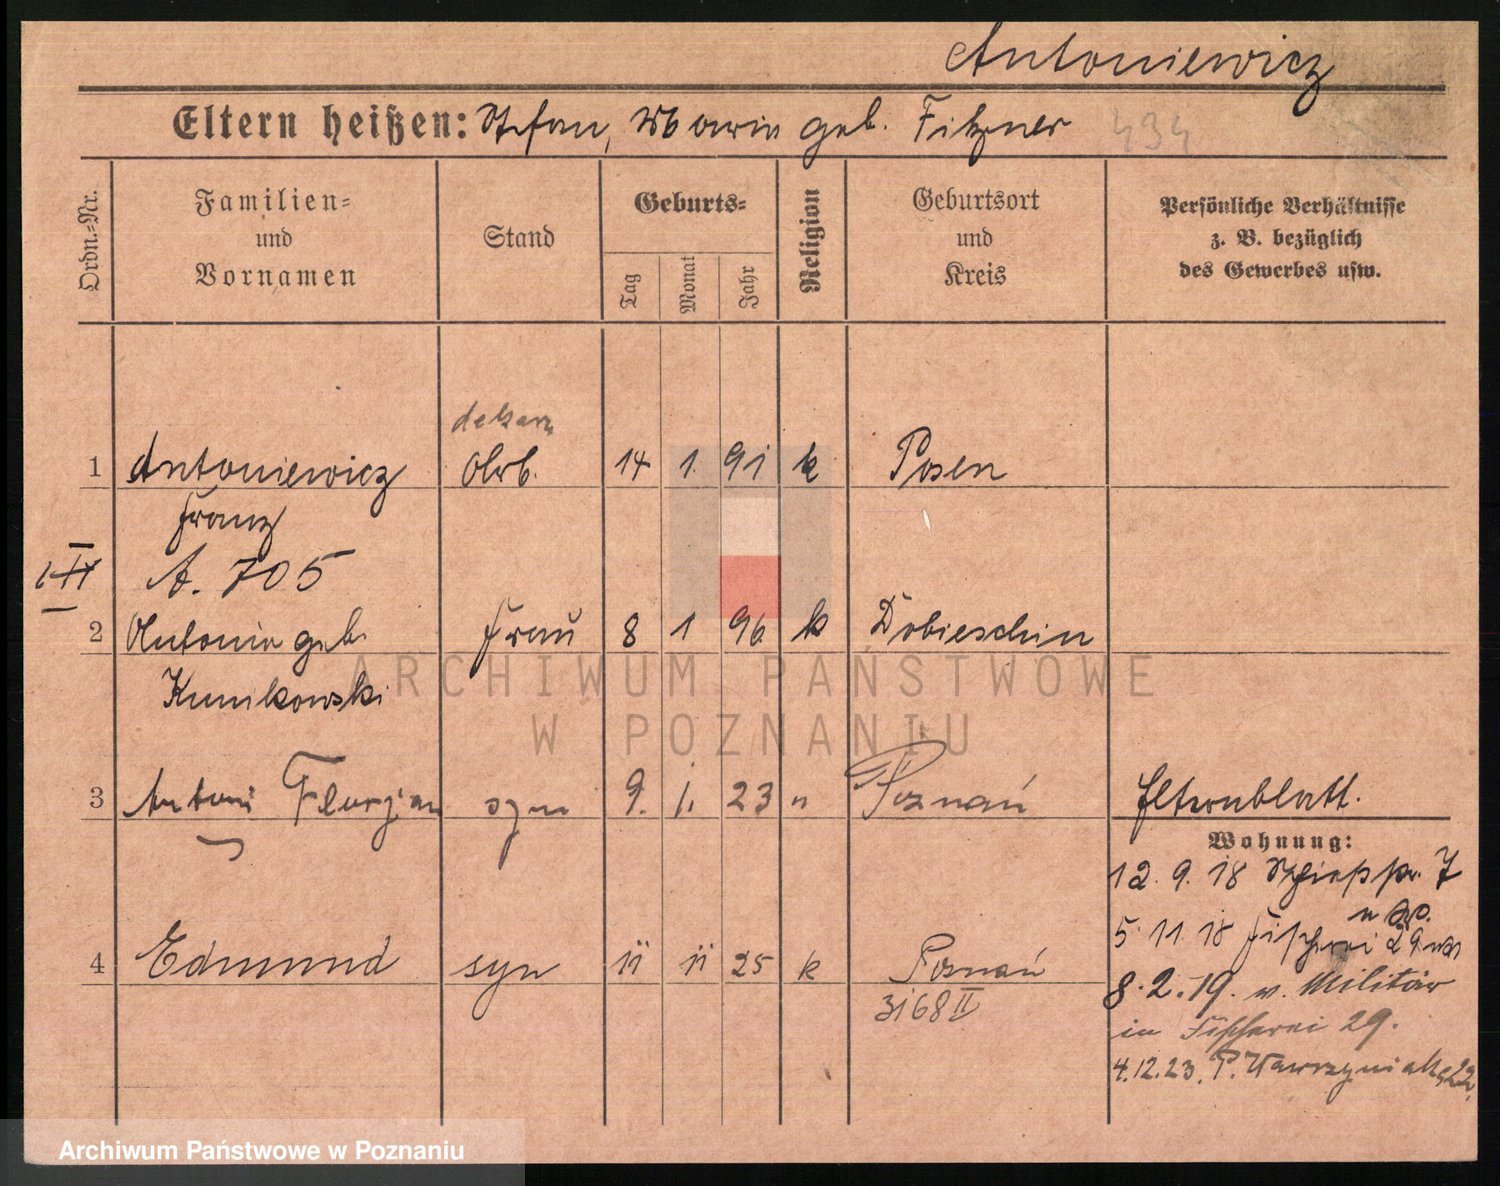 Antoniewicz
Eltern heißen: Stefan, Maria geb. Fitzner 434
Ordn.-Nr.
Familien-
und
Vornamen
Stand
Geburts-
Tag
Monat
Jahr
Religion
Geburtsort
und
Kreis
Persönliche Verhältnisse
z. B. bezüglich
des Gewerbes usw.
dekarz
1 Antoniewicz Arb. 14 1. 91 k Posen
Franz
A. 705
2 Antonie geb. Frau 8 1 96 k Dobieschin
Kunikowski
3 Antoni Florjan syn 9. 1. 23 " Poznań Elternblatt.
Wohnung:
12. 9. 18 7
5. 11. 18 Fischerei 29
4 Edmund syn 11 11 25 k Poznań
3168 II
8. 2. 19. v. Militär
in Fischerei 29.
4.12.23. P. Wawrzyniaka 22,
ARCHIWUM PAŃSTWOWE
W POZNANIU
Archiwum Państwowe w Poznaniu